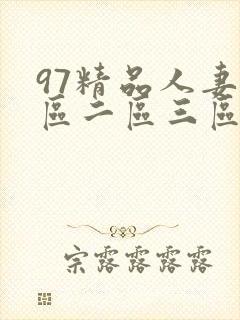 97精品人妻
區二區三區
宗露露露露